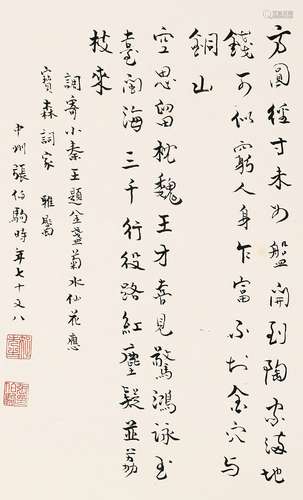 方圓經寸未如盤開到陶家滿地
錢可似窮人身乍富不於金穴與
銅山
空思留枕魏王才喜見驚鴻詠玉
臺閩海三千行役路紅塵疑並荔
枝來
調寄小秦王題金盞菊水仙花應
寶森詞家 雅屬
中州張伯駒時年七十又八